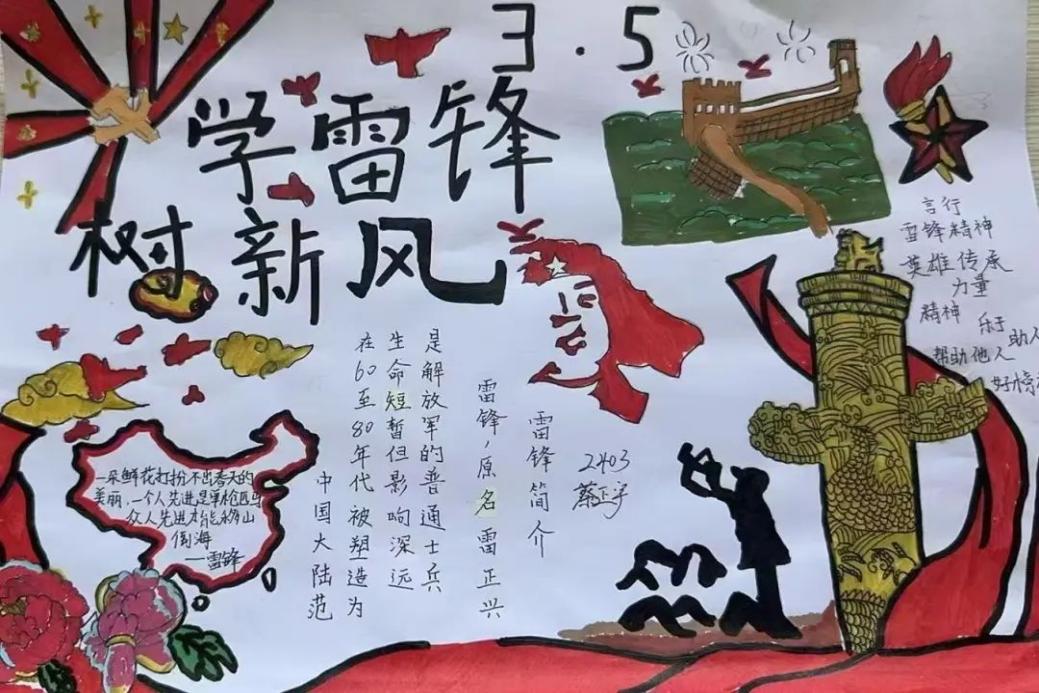 3.5
学雷锋
树新风
言行
雷锋精神
英雄传承
力量
精神 乐于助人
帮助他人
好榜
一朵鲜花打扮不出春天的
美丽，一个人先进是单枪匹马
众人先进才能移山
倒海
—雷锋
雷锋简介
雷锋，原名雷正兴
是解放军的普通士兵
生命短暂但影响深远
在60至80年代被塑造为
中国大陆范
2403